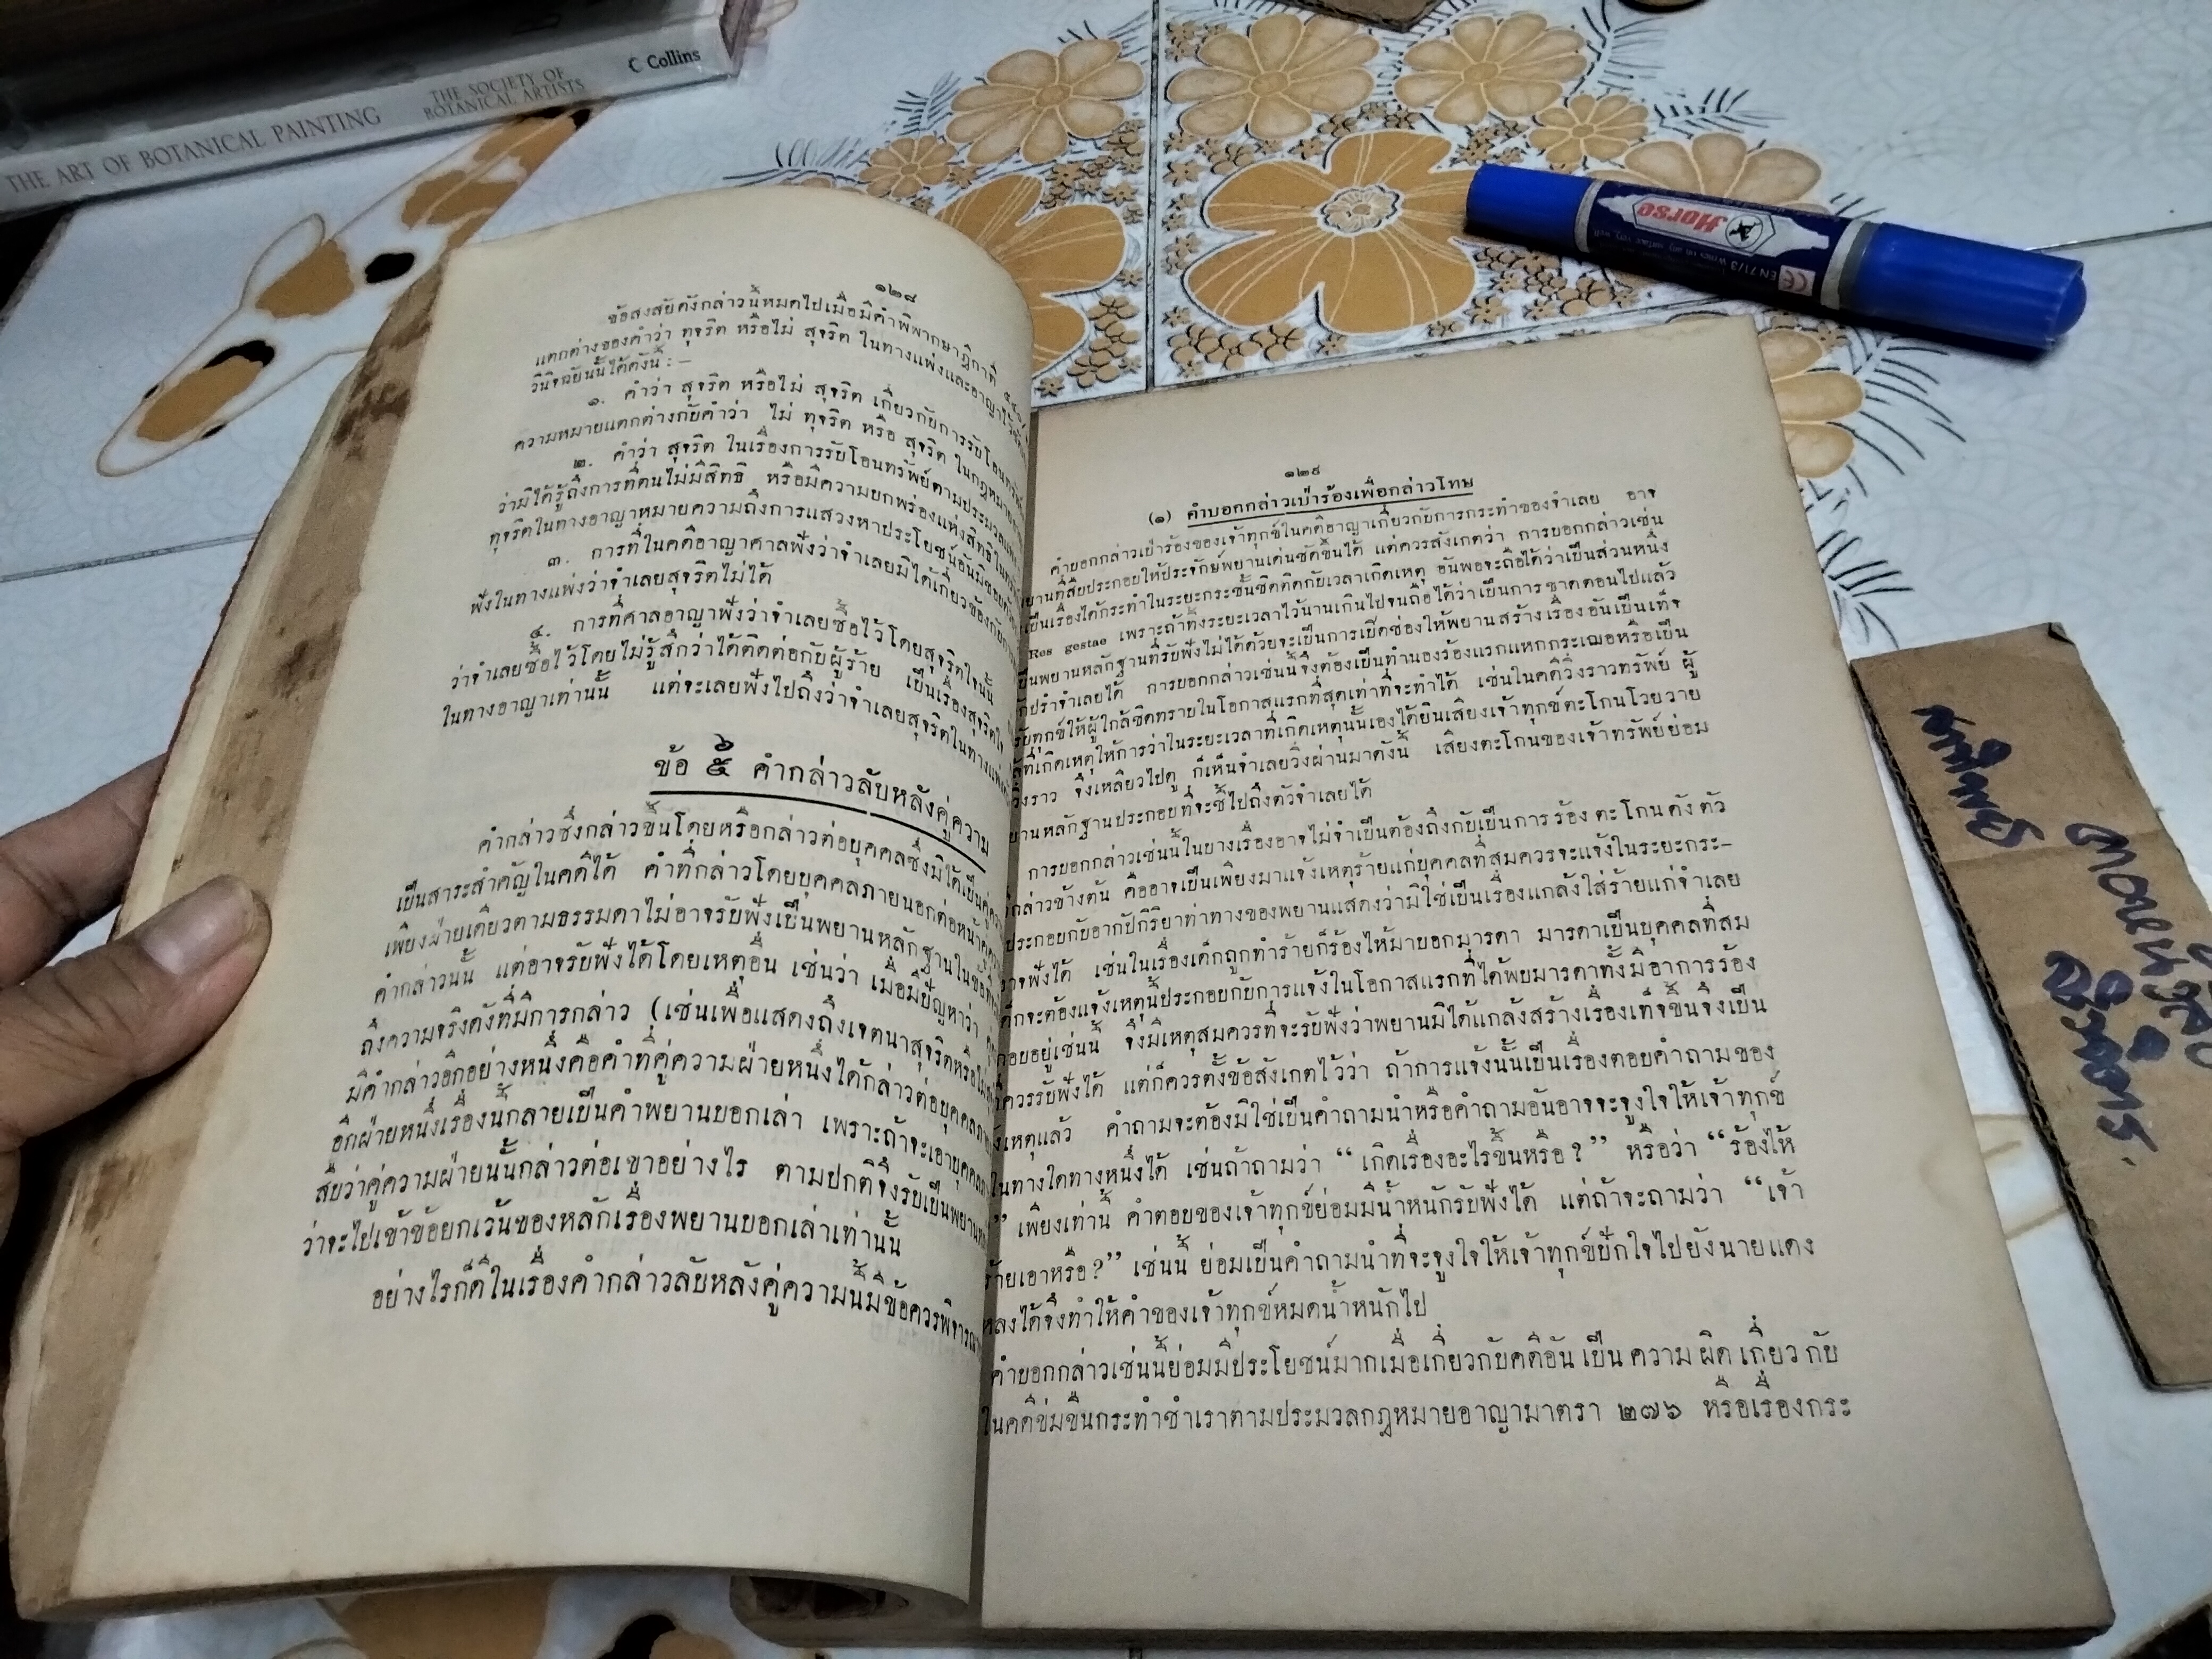 THE ART OF BOTANICAL PAINTING
THE SOCIETY OF
BOTANICAL ARTISTS
Collins
Horse
๑๒๘
ข้อสงสัยดังกล่าวนี้หมดไปเมื่อมีคำพิพากษาฎีกาที่
แตกต่างของคำว่า ทุจริต หรือไม่ สุจริต ในทางแพ่งและอาญาไว้
วินิจฉัยนั้นได้ดังนี้ :–
๑. คำว่า สุจริต หรือไม่ สุจริต เกี่ยวกับการรับโอน
ความหมายแตกต่างกับคำว่า ไม่ ทุจริต หรือ สุจริต ในกฎหมาย
๒. คำว่า สุจริต ในเรื่องการรับโอนทรัพย์ตามประมวล
ว่ามิได้รู้ถึงการที่ตนไม่มีสิทธิ หรือมีความบกพร่องแห่งสิทธิ
ทุจริตในทางอาญาหมายความถึงการแสวงหาประโยชน์อันมิชอบ
๓. การที่ในคดีอาญาศาลฟังว่าจำเลยมิได้เกี่ยวข้องกับ
ฟังในทางแพ่งว่าจำเลยสุจริตไม่ได้
๔. การที่ศาลอาญาฟังว่าจำเลยซื้อไว้โดยสุจริตใจนั้น
ว่าจำเลยซื้อไว้โดยไม่รู้สึกว่าได้ติดต่อกับผู้ร้าย เป็นเรื่องสุจริตใจ
ในทางอาญาเท่านั้น แต่จะเลยฟังไปถึงว่าจำเลยสุจริตในทาง
ข้อ ๕ คำกล่าวลับหลังคู่ความ
คำกล่าวซึ่งกล่าวขึ้นโดยหรือกล่าวต่อบุคคลซึ่งมิได้เป็น
เป็นสาระสำคัญในคดีได้ คำที่กล่าวโดยบุคคลภายนอกต่อหน้า
เพียงฝ่ายเดียวตามธรรมดาไม่อาจรับฟังเป็นพยานหลักฐานใน
คำกล่าวนั้น แต่อาจรับฟังได้โดยเหตุอื่น เช่นว่า เมื่อมีปัญหาว่า
ถึงความจริงดังที่มีการกล่าว (เช่นเพื่อแสดงถึงเจตนาสุจริตหรือ
มีคำกล่าวอีกอย่างหนึ่งคือคำที่คู่ความฝ่ายหนึ่งได้กล่าวต่อบุคคล
อีกฝ่ายหนึ่งเรื่องนี้กลายเป็นคำพยานบอกเล่า เพราะถ้าจะเอาบุคคล
สืบว่าคู่ความฝ่ายนั้นกล่าวต่อเขาอย่างไร ตามปกติจึงรับเป็นพยาน
ว่าจะไปเข้าข้อยกเว้นของหลักเรื่องพยานบอกเล่าเท่านั้น
อย่างไรก็ดีในเรื่องคำกล่าวลับหลังคู่ความนี้มีข้อควรพิจารณา
๑๒๙
(๑) คำบอกกล่าวเป่าร้องเพื่อกล่าวโทษ
คำบอกกล่าวเป่าร้องของเจ้าทุกข์ในคดีอาญาเกี่ยวกับการกระทำของจำเลย อาจ
พยานที่สืบประกอบให้ประจักษ์พยานเด่นชัดขึ้นได้ แต่ควรสังเกตว่า การบอกกล่าวเช่น
เป็นเรื่องได้กระทำในระยะกระชั้นชิดติดกับเวลาเกิดเหตุ อันพอจะถือได้ว่าเป็นส่วนหนึ่ง
Res gestae เพราะถ้าทิ้งระยะเวลาไว้นานเกินไปจนถือได้ว่าเป็นการขาดตอนไปแล้ว
เป็นพยานหลักฐานที่รับฟังไม่ได้ด้วยจะเป็นการเปิดช่องให้พยานสร้างเรื่องอันเป็นเท็จ
ปรักปรำจำเลยได้ การบอกกล่าวเช่นนี้จึงต้องเป็นทำนองร้องแรกแหกกระเฌอหรือเป็น
รับทุกข์ให้ผู้ใกล้ชิดทราบในโอกาสแรกที่สุดเท่าที่จะทำได้ เช่นในคดีวิ่งราวทรัพย์ ผู้
ที่เกิดเหตุให้การว่าในระยะเวลาที่เกิดเหตุนั้นเองได้ยินเสียงเจ้าทุกข์ตะโกนโวยวาย
วิ่งราว จึงเหลียวไปดู ก็เห็นจำเลยวิ่งผ่านมาดังนี้ เสียงตะโกนของเจ้าทรัพย์ย่อม
พยานหลักฐานประกอบที่จะชี้ไปถึงตัวจำเลยได้
การบอกกล่าวเช่นนี้ในบางเรื่องอาจไม่จำเป็นต้องถึงกับเป็นการร้องตะโกนดังตัว
กล่าวข้างต้น คืออาจเป็นเพียงมาแจ้งเหตุร้ายแก่บุคคลที่สมควรจะแจ้งในระยะกระ–
ประกอบกับอากัปกิริยาท่าทางของพยานแสดงว่ามิใช่เป็นเรื่องแกล้งใส่ร้ายแก่จำเลย
อาจฟังได้ เช่นในเรื่องเด็กถูกทำร้ายก็ร้องไห้มาบอกมารดา มารดาเป็นบุคคลที่สม
เด็กจะต้องแจ้งเหตุนี้ประกอบกับการแจ้งในโอกาสแรกที่ได้พบมารดาทั้งมีอาการร้อง
อยู่เช่นนี้ จึงมีเหตุสมควรที่จะรับฟังว่าพยานมิได้แกล้งสร้างเรื่องเท็จขึ้นจึงเป็น
ควรรับฟังได้ แต่ก็ควรตั้งข้อสังเกตไว้ว่า ถ้าการแจ้งนั้นเป็นเรื่องตอบคำถามของ
เหตุแล้ว คำถามจะต้องมิใช่เป็นคำถามนำหรือคำถามอันอาจจะจูงใจให้เจ้าทุกข์
ในทางใดทางหนึ่งได้ เช่นถ้าถามว่า “เกิดเรื่องอะไรขึ้นหรือ?” หรือว่า “ร้องไห้
” เพียงเท่านี้ คำตอบของเจ้าทุกข์ย่อมมีน้ำหนักรับฟังได้ แต่ถ้าจะถามว่า “เจ้า
ร้ายเอาหรือ?” เช่นนี้ ย่อมเป็นคำถามนำที่จะจูงใจให้เจ้าทุกข์ปักใจไปยังนายแดง
หลงได้จึงทำให้คำของเจ้าทุกข์หมดน้ำหนักไป
คำบอกกล่าวเช่นนี้ย่อมมีประโยชน์มากเมื่อเกี่ยวกับคดีอันเป็นความผิดเกี่ยวกับ
ในคดีข่มขืนกระทำชำเราตามประมวลกฎหมายอาญามาตรา ๒๗๖ หรือเรื่องกระ